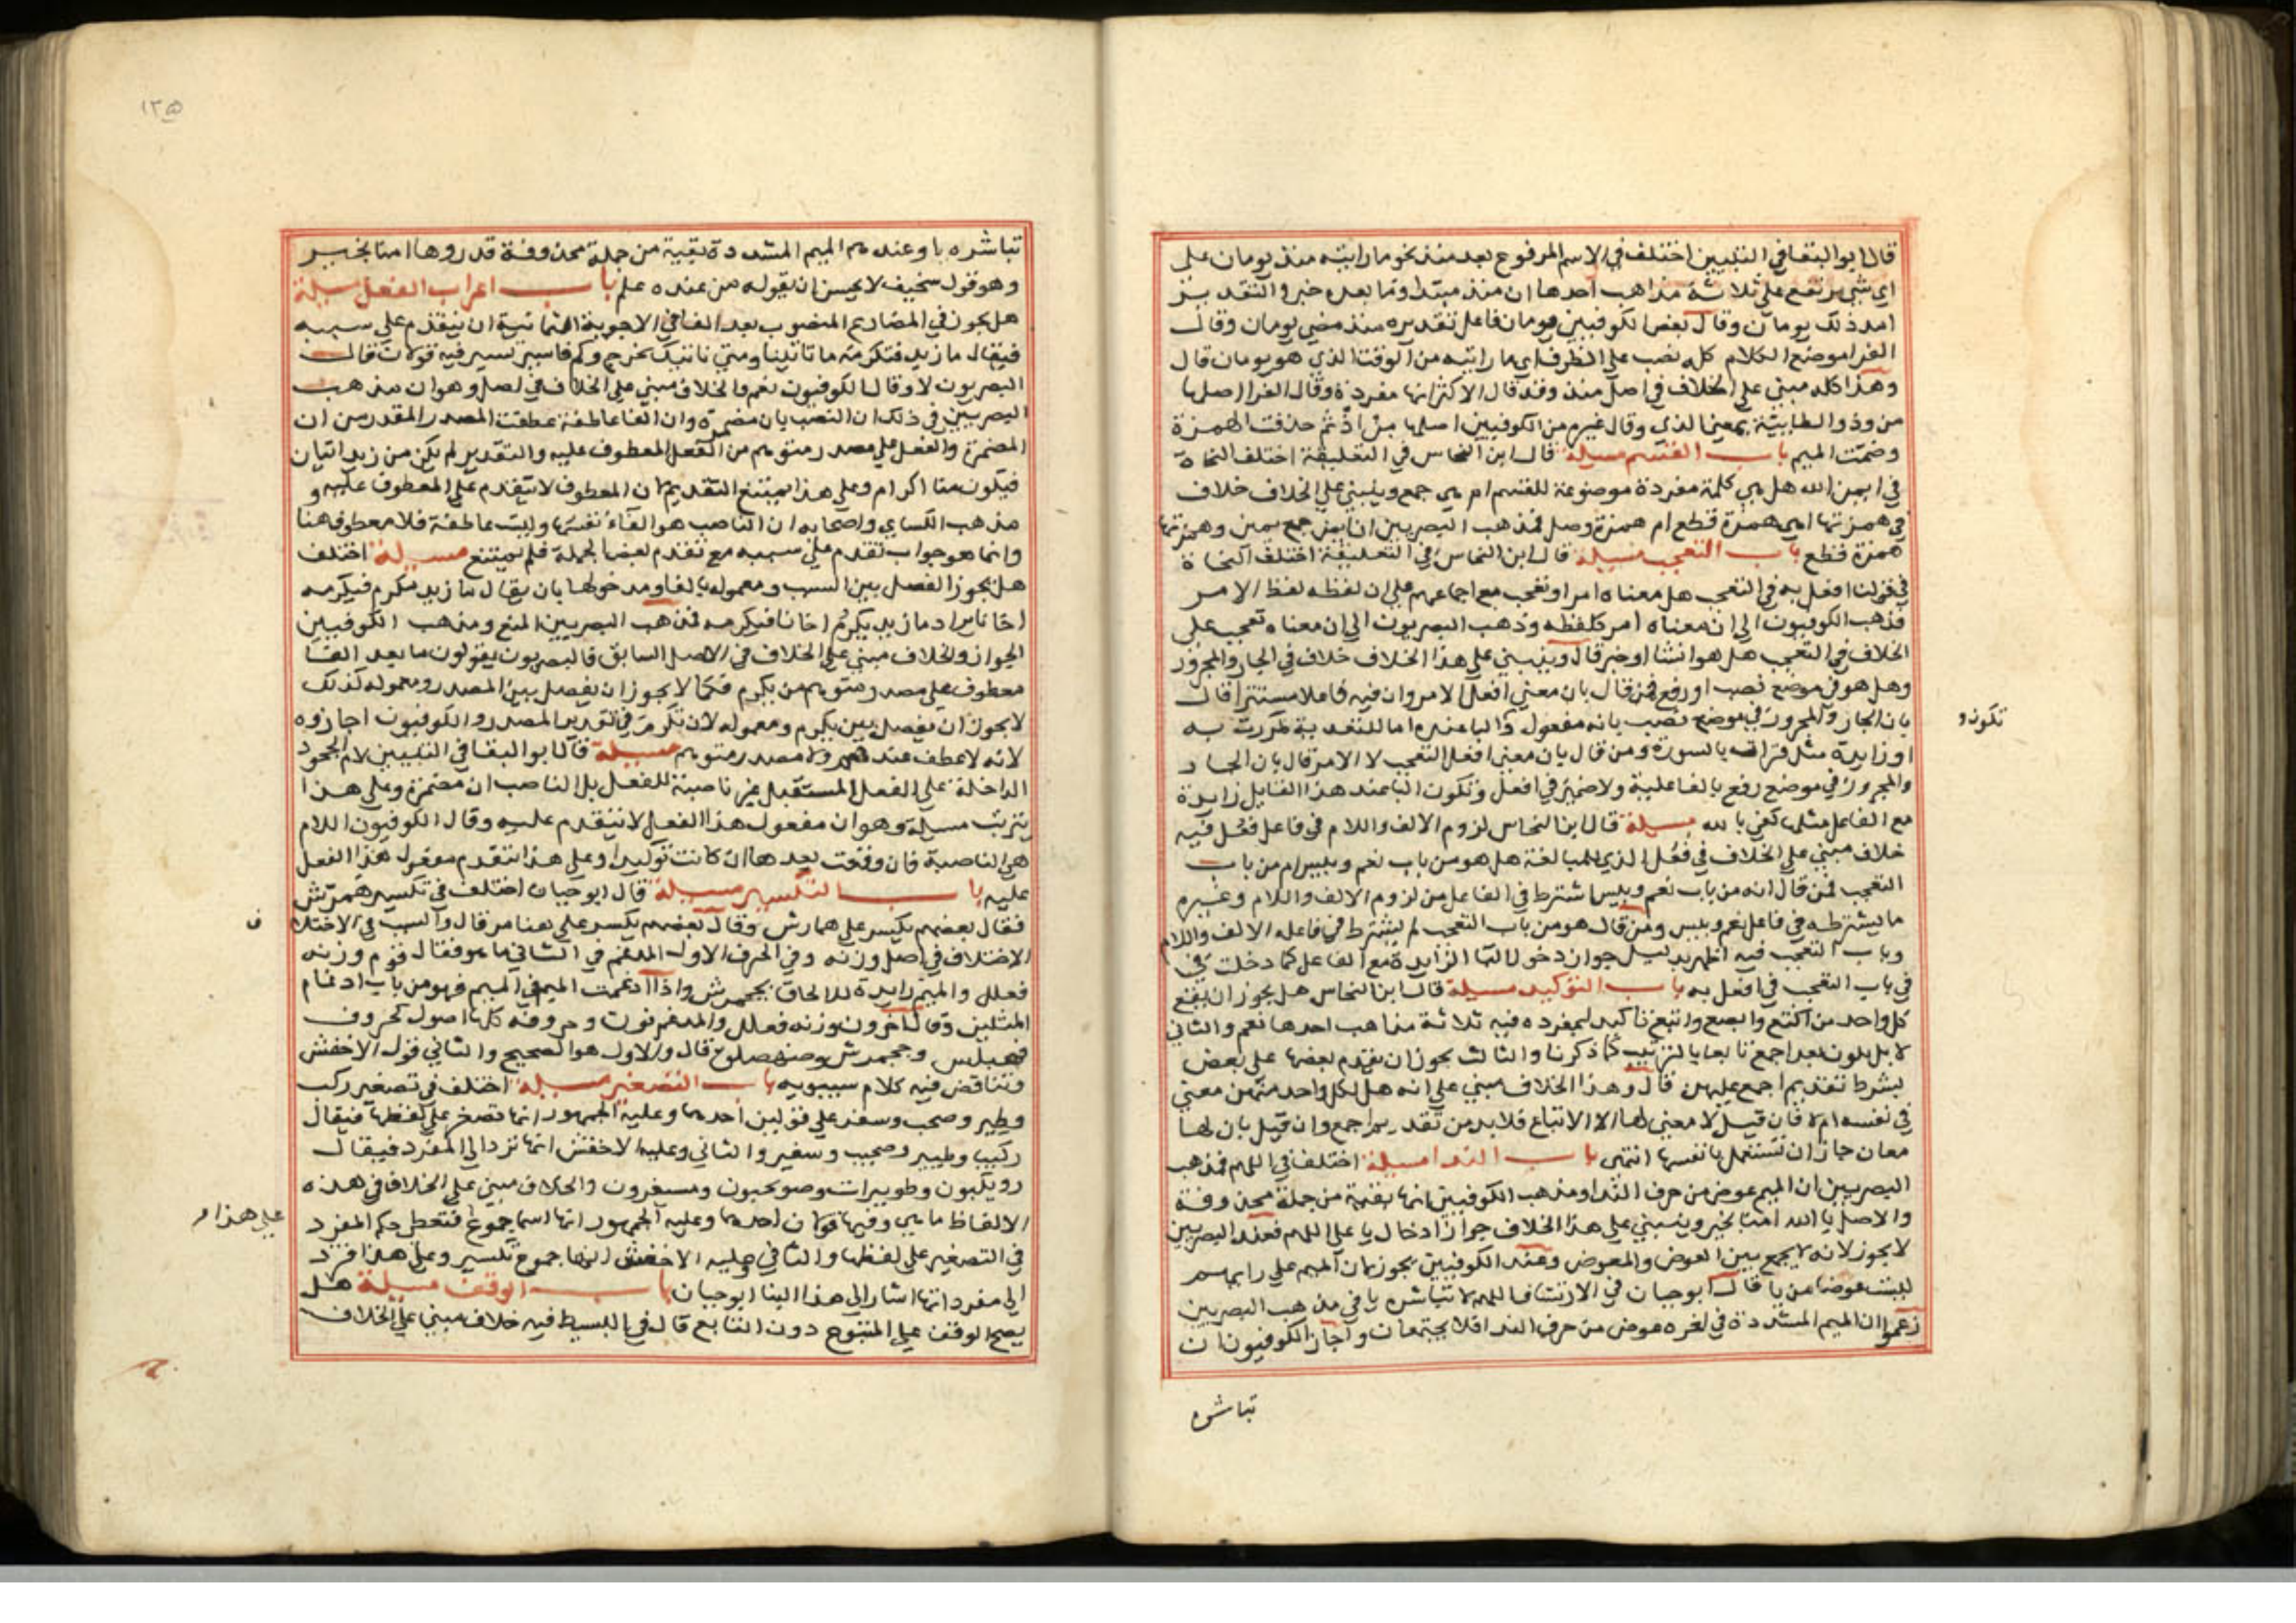 قال ابو البقا في التبيين اختلف في الاسم المرفوع بعد منذ نحو ما رايته منذ يومان على
اي شي يرتفع على ثلاثة مذاهب احدها ان منذ مبتدا وما بعده خبر والتقدير
امد ذلك يومان وقال بعض الكوفيين يومان فاعل تقديره منذ مضي يومان وقال
الفرا موضع الكلام كله نصب على الظرف اي ما رايته من الوقت الذي هو يومان قال
وهذا كله مبني على الخلاف في اصل منذ وقد قال الاكثر انها مفردة وقال الفرا اصلها
من وذو الطايية بمعنى الذي وقال غيره من الكوفيين اصلها من اذ ثم حذفت الهمزة
وضمت الميم باب القسم مسيلة قال ابن النحاس في التعليقة اختلف النحاة
في ايمن الله هل هي كلمة مفردة موضوعة للقسم ام هي جمع وينبني على الخلاف خلاف
في همزتها اهي همزة قطع ام همزة وصل فمذهب البصريين ان ايمن جمع يمين وهمزتها
همزة قطع باب التعجب مسيلة قال ابن النحاس في التعليقة اختلف النحاة
في قولنا افعل به في التعجب هل معناه امر او تعجب مع اجماعهم على ان لفظه لفظ الامر
فذهب الكوفيون الى ان معناه امر كلفظه وذهب البصريون الى ان معناه تعجب على
الخلاف في التعجب هل هو انشا او خبر قال وينبني على هذا الخلاف خلاف في الجار والمجرور
وهل هو في موضع نصب او رفع فمن قال بان معنى افعل الامر وان فيه فاعلا مستترا قال
بان الجار والمجرور في موضع نصب بانه مفعول والبا عنده اما للتعدية كمررت به
تكون و
او زايدة مثل قرات بالسورة ومن قال بان معنى افعل التعجب لا الامر قال بان الجار
والمجرور في موضع رفع بالفاعلية ولا ضمير في افعل وتكون البا عند هذا القايل زايدة
مع الفاعل مثل كفى بالله مسيلة قال ابن النحاس لزوم الالف واللام في فاعل فعل فيه
خلاف مبني على الخلاف في فعل الذي للمبالغة هل هو من باب نعم وبيس ام من باب
التعجب فمن قال انه من باب نعم وبيس اشترط في الفاعل من لزوم الالف واللام وغيره
ما يشترطه في فاعل نعم وبيس ومن قال هو من باب التعجب لم يشترط في فاعله الالف واللام
وباب التعجب فيه اظهر بدليل جواز دخول البا الزايدة مع الفاعل كما دخلت في
في باب التعجب في افعل به باب التوكيد مسيلة قال ابن النحاس هل يجوز ان يقع
كل واحد من اكتع وابصع وابتع تاكيد لمفرده فيه ثلاثة مذاهب احدها نعم والثاني
لا بل يكون بعد اجمع تابعا بالترتيب كما ذكرنا والثالث يجوز ان يقدم بعضها على بعض
بشرط تقديم اجمع عليهن قال وهذا الخلاف مبني على انه هل لكل واحد منهن معنى
في نفسه ام لا فان قيل لا معنى لها الا الاتباع فلا بد من تقديم اجمع وان قيل بان لها
معان جاز ان تستعمل بانفسها انتهى باب الندا مسيلة اختلف في اللهم فمذهب
البصريين ان الميم عوض من حرف الندا ومذهب الكوفيين انها بقية من جملة محذوفة
والاصل يا الله امنا بخير وينبني على هذا الخلاف جواز ادخال يا على اللهم فعند البصريين
لا يجوز لانه لا يجمع بين العوض والمعوض وعند الكوفيين يجوز لان الميم على رايهم
ليست عوضا من يا قال ابو حيان في الارتشاف اللهم لا تباشره يا في مذهب البصريين
زعموا ان الميم المشددة في اخره عوض من حرف الندا فلا يجتمعان واجاز الكوفيون ان
تباشره
١٣٥
تباشره يا وعندهم الميم المشددة بقية من جملة محذوفة قدروها امنا بخير
وهو قول سخيف لا يحسن ان يقوله من عنده علم باب اعراب الفعل مسيلة
هل يجوز في المضارع المنصوب بعد الفا في الاجوبة الثمانية ان يتقدم على سببه
فيقال ما زيد فنكرمه ما تاتينا ومتى ناتيك نخرج وكم فاسير تسير فيه قولان قال
البصريون لا وقال الكوفيون نعم والخلاف مبني على الخلاف في اصل وهو ان مذهب
البصريين في ذلك ان النصب بان مضمرة وان الفا عاطفة عطفت المصدر المقدر من ان
المضمرة والفعل على مصدر متوهم من الفعل المعطوف عليه والتقدير لم يكن من زيد اتيان
فيكون منا اكرام وعلى هذا يمتنع التقديم لان المعطوف لا يتقدم على المعطوف عليه و
مذهب الكساي واصحابه ان الناصب هو الفاء نفسها وليست عاطفة فلا معطوف هنا
وانما هو جواب تقدم على سببه مع تقدم بعض الجملة فلم يمتنع مسيلة اختلف
هل يجوز الفصل بين السبب ومعموله بالفا ومدخولها بان يقال ما زيد مكرم فيكرمه
اخانا يراد ما زيد يكرم اخانا فيكرمه فمذهب البصريين المنع ومذهب الكوفيين
الجواز والخلاف مبني على الخلاف في الاصل السابق فالبصريون يقولون ما بعد الفا
معطوف على مصدر متوهم من يكرم فكما لا يجوز ان يفصل بين المصدر ومعموله كذلك
لا يجوز ان يفصل بين يكرم ومعموله لان نكرم في تقدير المصدر والكوفيون اجازوه
لانه لا عطف عندهم ولا مصدر متوهم مسيلة قال ابو البقا في التبيين لام الجحود
الداخلة على الفعل المستقبل غير ناصبة للفعل بل الناصب ان مضمرة وعلى هذا
يترتب مسيلة وهو ان مفعول هذا الفعل لا يتقدم عليه وقال الكوفيون اللام
هي الناصبة فان وقعت بعدها ان كانت توكيدا وعلى هذا يتقدم مفعول هذا الفعل
عليه باب التكسير مسيلة قال ابو حيان اختلف في تكسير همرش
فقال بعضهم يكسر على همارش وقال بعضهم يكسر على هنامر قال والسبب في الاختلا
ف
الاختلاف في اصل وزنه وفي الحرف الاول المدغم في الثاني ما هو فقال قوم وزنه
فعلل والميم زايدة للالحاق بجحمرش واذا ادغمت الميم في الميم فهو من باب ادغام
المثلين وقال اخرون وزنه فعلل والمدغم نون وحروفه كلها اصول كحروف
قهبلس وجحمرش وصهصلق قال والاول هو الصحيح والثاني قول الاخفش
وتناقض فيه كلام سيبويه باب التصغير مسيلة اختلف في تصغير ركب
وطير وصحب وسفر على قولين احدهما وعليه الجمهور انها تصغر على لفظها فيقال
ركيب وطيير وصحيب وسفير والثاني وعليه الاخفش انها ترد الى المفرد فيقال
رويكبون وطويرات وصويحبون ومسيفرون والخلاف مبني على الخلاف في هذه
الالفاظ ما هي وفيها قولان احدهما وعليه الجمهور انها اسما جموع فتعطى حكم المفرد
على هذا م
في التصغير على لفظها والثاني وعليه الاخفش انها جموع تكسير وعلى هذا فترد
الى مفرداتها اشار الى هذا البنا ابو حيان باب الوقف مسيلة هل
يصح الوقف على المتبوع دون التابع قال في البسيط فيه خلاف مبني على الخلاف